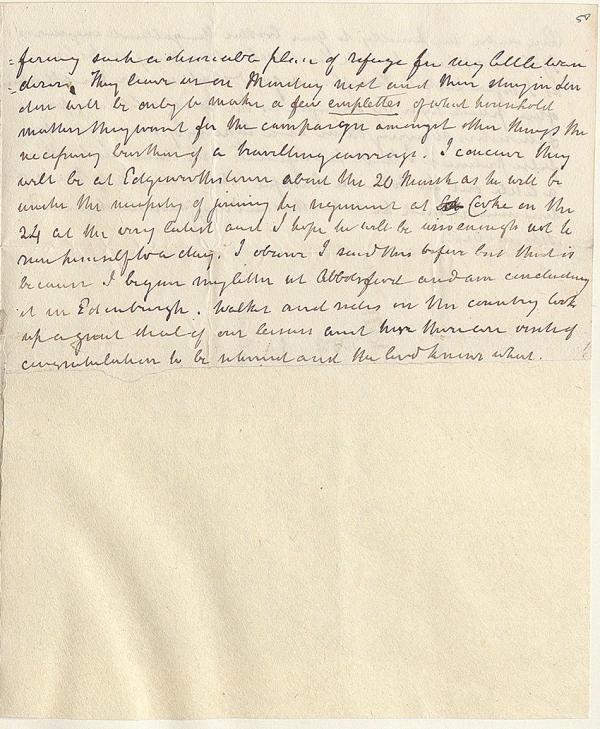 58
=forming such a desireable place of refuge for my little wan
=derers. They leave us on Monday next and their stay in Lon
don will be only to make a few emplettes of what household
matters they want for the campaign amongst other things the
necessary burthen of a travelling carriage. I conceive they
will be at Edgeworthstown about the 20 March as he will be
under the necessity of joining his regiment at Corke on the
24 at the very latest and I hope he will be wise enough not to
run himself to a day. I observe I said this before but that is
because I began my letter at Abbotsford and am concluding
it in Edinburgh. Walks and rides in the country took
up a great deal of our leisure and here there are visits of
congratulation to be returnd and the lord knows what.